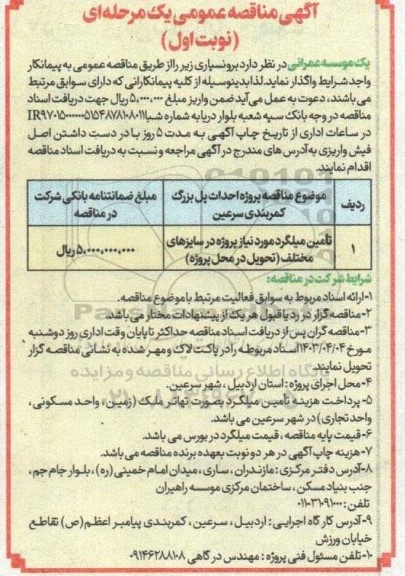 آگهی مناقصه عمومی یک مرحله‌ای
(نوبت اول)
یک موسسه عمرانی در نظر دارد برونسپاری زیر را از طریق مناقصه عمومی به پیمانکار
واجد شرایط واگذار نماید. لذا بدینوسیله از کلیه پیمانکارانی که دارای سوابق مرتبط
می باشند، دعوت به عمل می آید ضمن واریز مبلغ ۵,۰۰۰,۰۰۰ ریال جهت دریافت اسناد
مناقصه در وجه بانک سپه شعبه بلوار دریا به شماره شبا
در ساعات اداری از تاریخ چاپ آگهی به مدت ۵ روز با در دست داشتن اصل
فیش واریزی به آدرس های مندرج در آگهی مراجعه و نسبت به دریافت اسناد مناقصه
اقدام نمایند.
ردیف
موضوع مناقصه پروژه احداث پل بزرگ کمربندی سرعین
مبلغ ضمانتنامه بانکی شرکت در مناقصه
۱
تأمین میلگرد مورد نیاز پروژه در سایزهای مختلف (تحویل در محل پروژه)
۵,۰۰۰,۰۰۰,۰۰۰ ریال
شرایط شرکت در مناقصه:
۱-ارائه اسناد مربوط به سوابق فعالیت مرتبط با موضوع مناقصه.
۲-مناقصه گزار در رد یا قبول هر یک از پیشنهادات مختار می باشد.
۳-مناقصه گران پس از دریافت اسناد مناقصه حداکثر تا پایان وقت اداری روز دوشنبه
مورخ ۱۴۰۳/۰۴/۰۴ اسناد مربوطه را در پاکت لاک و مهر شده به نشانی مناقصه گزار
تحویل نمایند.
۴-محل اجرای پروژه: استان اردبیل، شهر سرعین.
۵- پرداخت هزینه تأمین میلگرد بصورت تهاتر ملک (زمین، واحد مسکونی،
واحد تجاری) در شهر سرعین می باشد.
۶-قیمت پایه مناقصه، قیمت میلگرد در بورس می باشد.
۷-هزینه چاپ آگهی در هر دو نوبت بعهده برنده مناقصه می باشد.
۸-آدرس دفتر مرکزی: مازندران، ساری، میدان امام خمینی (ره)، بلوار جام جم،
جنب بنیاد مسکن، ساختمان مرکزی موسسه راهبران
تلفن: ۰۱۱-۳۱۰۹۱۰۰۰
۹-آدرس کارگاه اجرایی: اردبیل، سرعین، کمربندی پیامبر اعظم (ص) تقاطع
خیابان ورزش
۱۰-تلفن مسئول فنی پروژه: مهندس درگاهی ۰۹۱۴۶۲۸۸۱۰۸